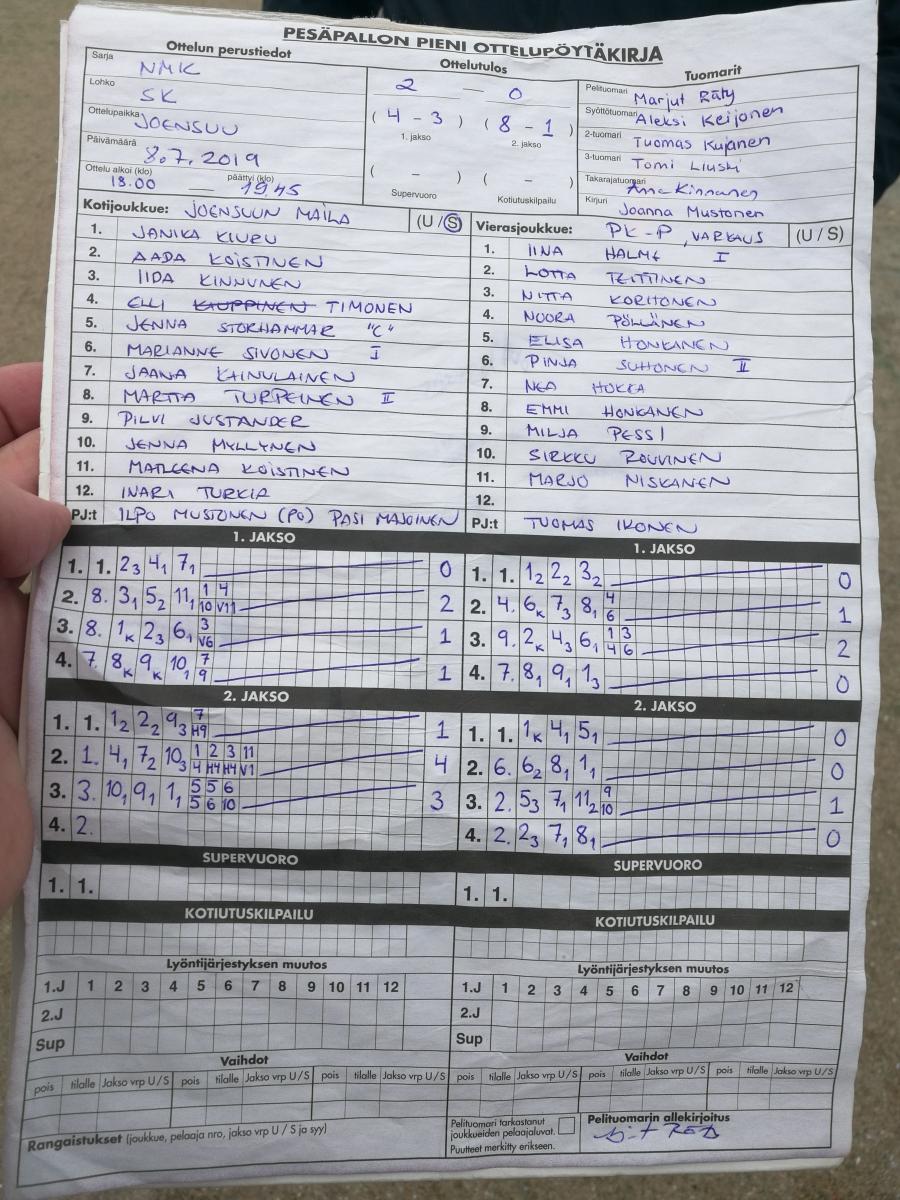 PESÄPALLON PIENI OTTELUPÖYTÄKIRJA
Ottelun perustiedot
Ottelutulos
Tuomarit
Sarja NMK
Lohko SK
Ottelupaikka JOENSUU
Päivämäärä 8.7.2019
Ottelu alkoi (klo) päättyi (klo)
18.00 — 1945
2 — 0
( 4 - 3 ) ( 8 - 1 )
1. jakso 2. jakso
( - ) ( - )
Supervuoro Kotiutuskilpailu
Pelituomari Marjut Räty
Syöttötuomari Aleksi Keijonen
2-tuomari Tuomas Kujanen
3-tuomari Tomi Liuski
Takarajatuomari Anne Kinnunen
Kirjuri Joanna Mustonen
Kotijoukkue: JOENSUUN MAILA (U / S)
1. JANIKA KIURU
2. AADA KOISTINEN
3. IIDA KINNUNEN
4. ELLI KAUPPINEN TIMONEN
5. JENNA STORHAMMAR "C"
6. MARIANNE SIVONEN I
7. JAANA KAINULAINEN
8. MARTTA TURPEINEN II
9. PILVI JUSTANDER
10. JENNA MYLLYNEN
11. MATLEENA KOISTINEN
12. INARI TURKIA
PJ:t ILPO MUSTONEN (PO) PASI MAJOINEN
Vierasjoukkue: PK-P, VARKAUS (U / S)
1. IINA HALME I
2. LOTTA TEITTINEN
3. NITTA KORHONEN
4. NOORA PÖLLÄNEN
5. ELISA HONKANEN
6. PINJA SUHONEN II
7. NEA HOKKA
8. EMMI HONKANEN
9. MILJA PESSI
10. SIRKKU ROUVINEN
11. MARJO NISKANEN
12.
PJ:t TUOMAS IKONEN
1. JAKSO
1. 1. 23 41 71 0
2. 8. 31 52 111 1 4 2
10 V11
3. 8. 1K 23 61 3 1
V6
4. 7. 8K 9K 101 7 1
9
1. JAKSO
1. 1. 12 22 32 0
2. 4. 6K 73 81 4 1
6
3. 9. 2K 43 61 1 3 2
4 6
4. 7. 81 91 13 0
2. JAKSO
1. 1. 12 22 93 7 1
H9
2. 1. 41 72 103 1 2 3 11 4
4 H4 H4 V1
3. 3. 101 91 11 5 5 6 3
5 6 10
4. 2.
2. JAKSO
1. 1. 1K 41 51 0
2. 6. 62 81 11 0
3. 2. 53 71 112 9 1
10
4. 2. 23 71 81 0
SUPERVUORO
1. 1.
SUPERVUORO
1. 1.
KOTIUTUSKILPAILU
KOTIUTUSKILPAILU
Lyöntijärjestyksen muutos
1.J 1 2 3 4 5 6 7 8 9 10 11 12
2.J
Sup
Lyöntijärjestyksen muutos
1.J 1 2 3 4 5 6 7 8 9 10 11 12
2.J
Sup
Vaihdot
pois tilalle Jakso vrp U / S pois tilalle Jakso vrp U / S pois tilalle Jakso vrp U / S
Vaihdot
pois tilalle Jakso vrp U / S pois tilalle Jakso vrp U / S pois tilalle Jakso vrp U / S
Rangaistukset (joukkue, pelaaja nro, jakso vrp U / S ja syy)
Pelituomari tarkastanut
joukkueiden pelaajaluvat.
Puutteet merkitty erikseen.
Pelituomarin allekirjoitus